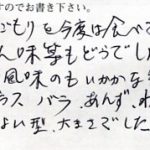 すのでお書き下さい。
ごもりを今度は食べて
ん味噌もどうでし
風味のもいかかな
ラス バラ、あんず、
よい型、大きさでした